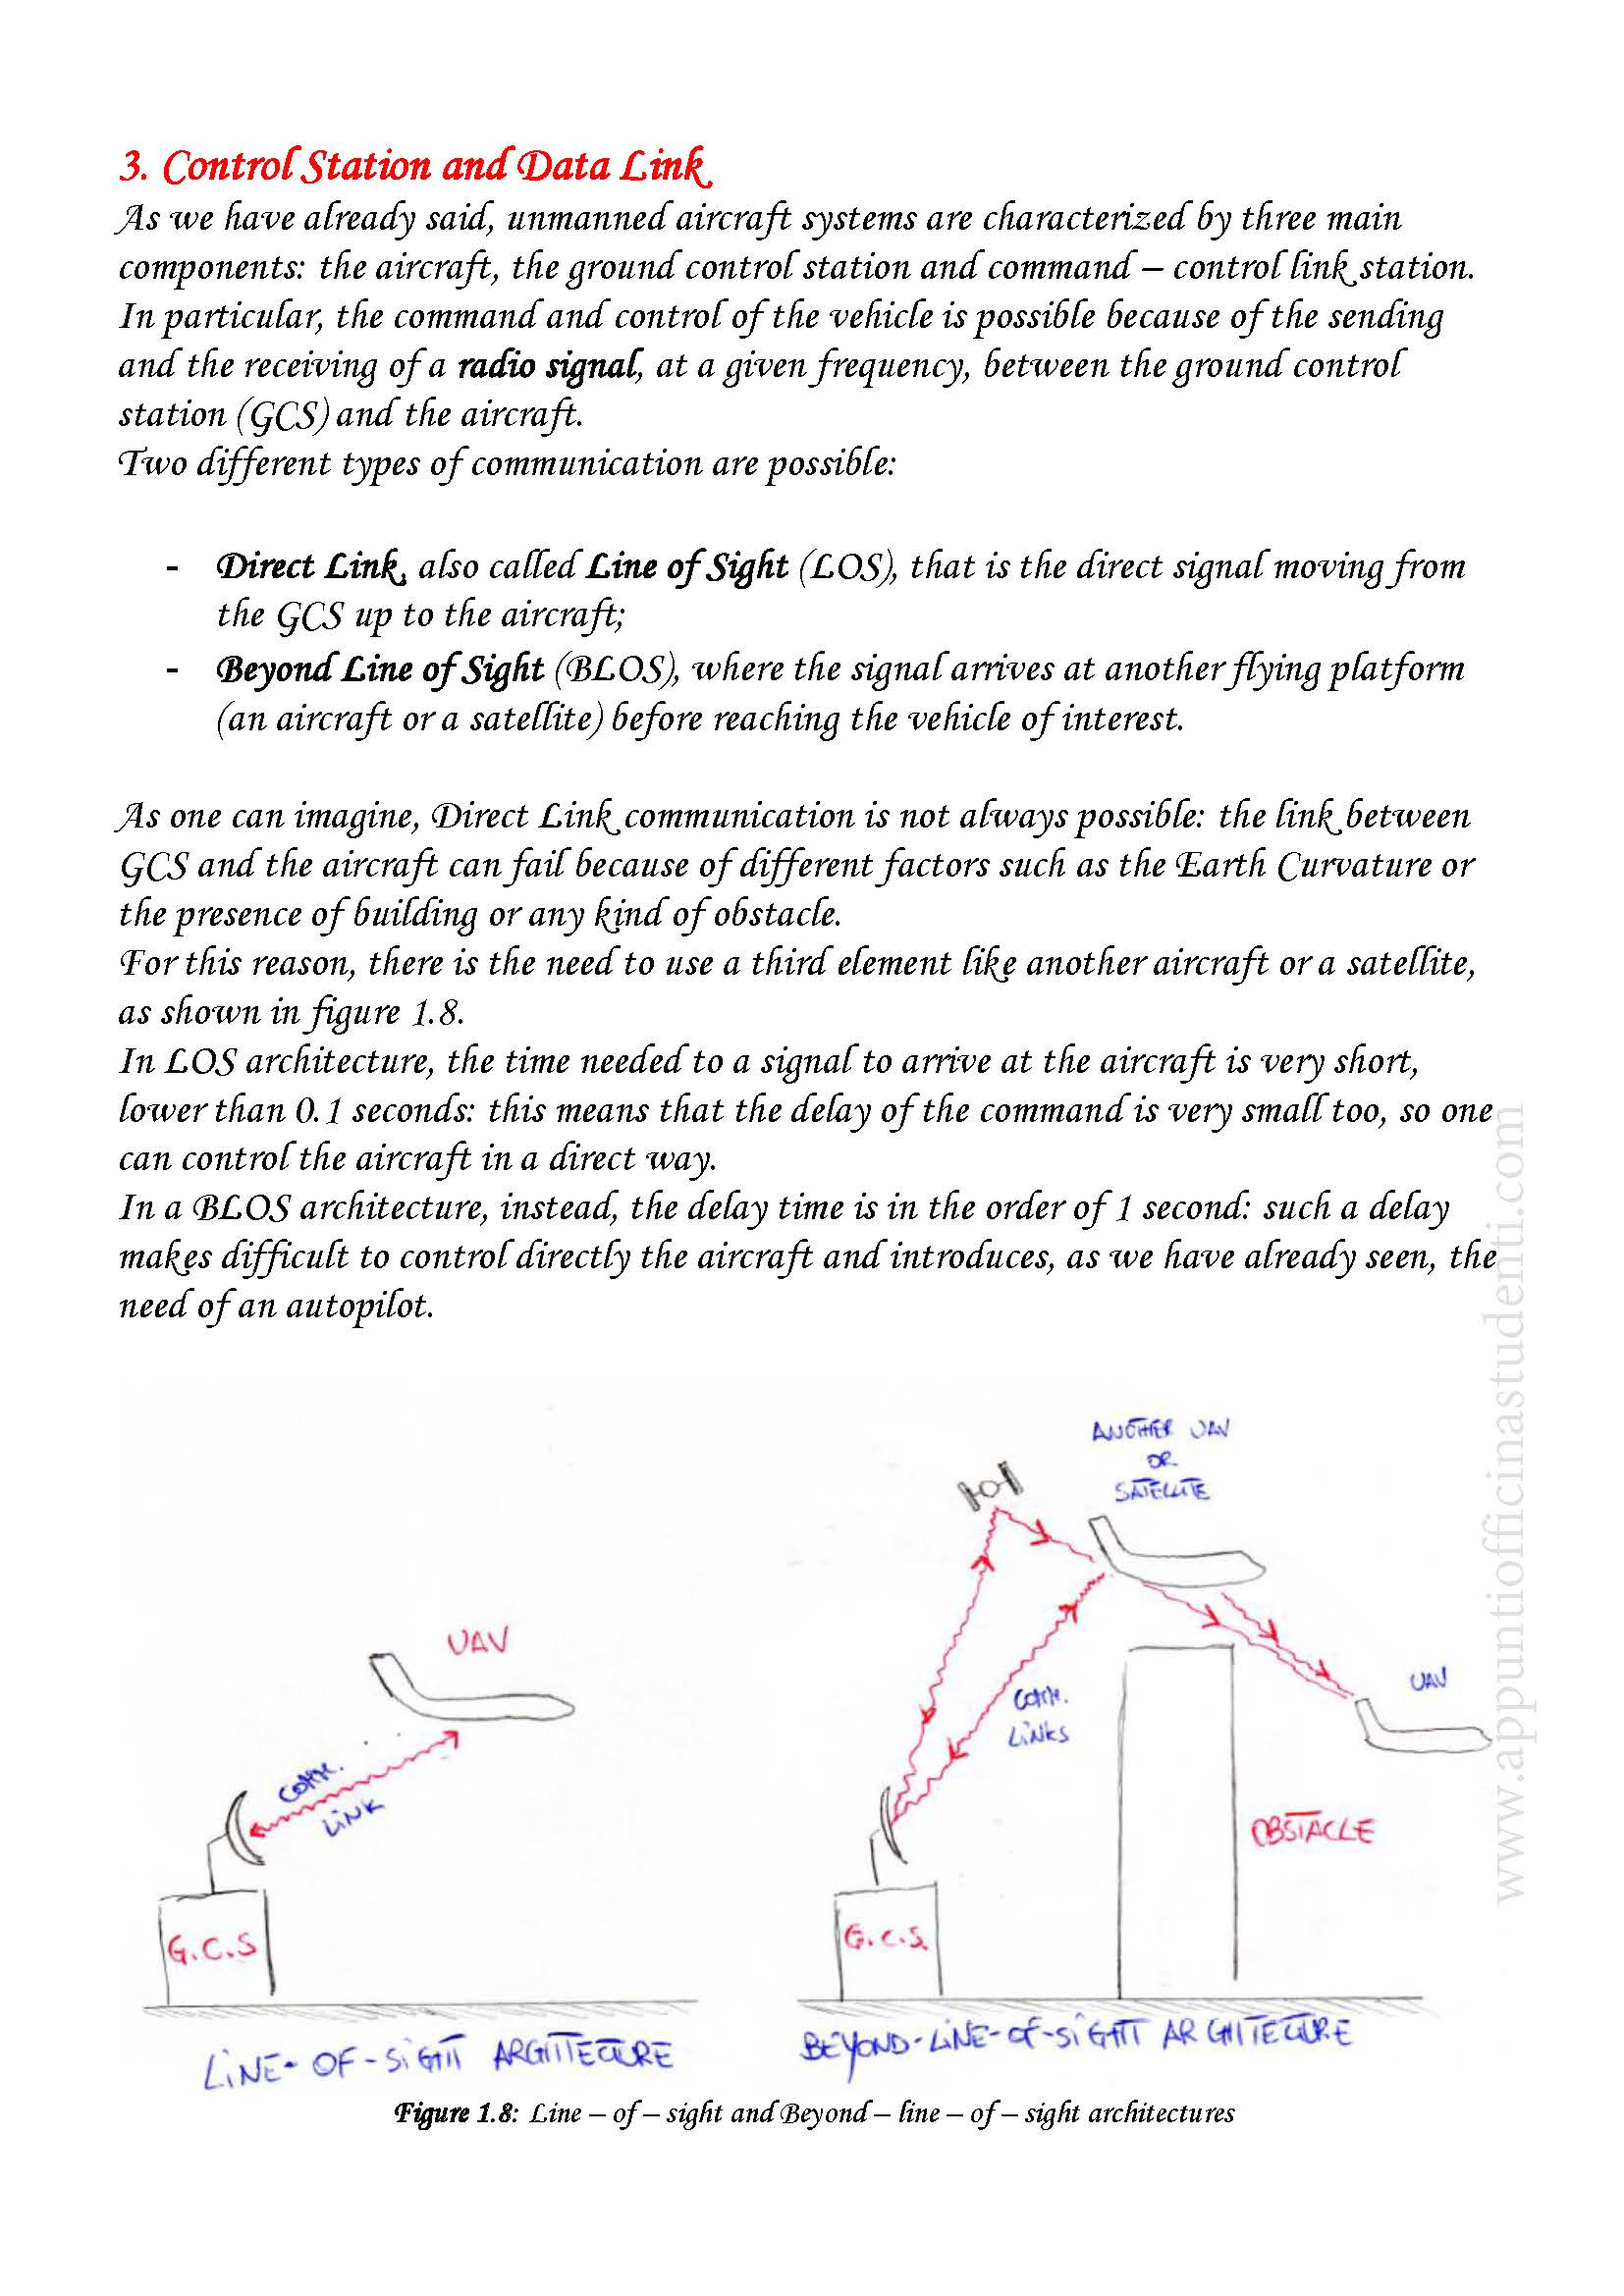 3. Control Station and Data Link
As we have already said, unmanned aircraft systems are characterized by three main
components: the aircraft, the ground control station and command – control link station.
In particular, the command and control of the vehicle is possible because of the sending
and the receiving of a radio signal, at a given frequency, between the ground control
station (GCS) and the aircraft.
Two different types of communication are possible:
- Direct Link, also called Line of Sight (LOS), that is the direct signal moving from
the GCS up to the aircraft;
- Beyond Line of Sight (BLOS), where the signal arrives at another flying platform
(an aircraft or a satellite) before reaching the vehicle of interest.
As one can imagine, Direct Link communication is not always possible: the link between
GCS and the aircraft can fail because of different factors such as the Earth Curvature or
the presence of building or any kind of obstacle.
For this reason, there is the need to use a third element like another aircraft or a satellite,
as shown in figure 1.8.
In LOS architecture, the time needed to a signal to arrive at the aircraft is very short,
lower than 0.1 seconds: this means that the delay of the command is very small too, so one
can control the aircraft in a direct way.
In a BLOS architecture, instead, the delay time is in the order of 1 second: such a delay
makes difficult to control directly the aircraft and introduces, as we have already seen, the
need of an autopilot.
UAV
COMM.
LINK
G.C.S
LINE-OF-SIGHT ARCHITECTURE
ANOTHER UAV
OR
SATELLITE
COMM.
LINKS
UAV
OBSTACLE
G.C.S.
BEYOND-LINE-OF-SIGHT ARCHITECTURE
Figure 1.8: Line – of – sight and Beyond – line – of – sight architectures
www.appuntiofficinastudenti.com